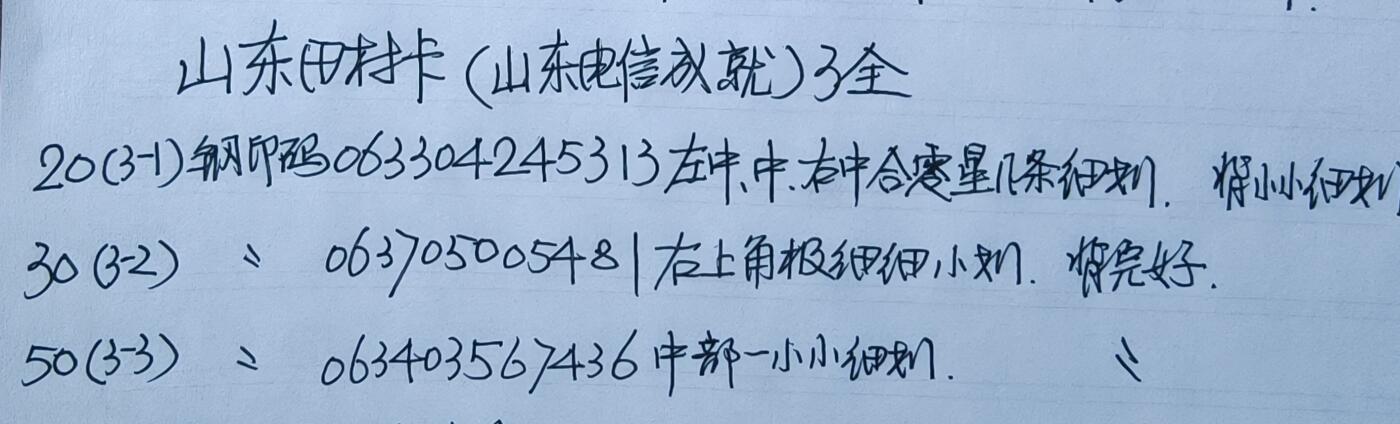 山东田村卡(山东电信成就)3全
20(3-1)钢印码063304245313左中、中、右中合零星几条细划. 背小小细划
30(3-2) 〃 063705005481右上角极细细小划. 背完好.
50(3-3) 〃 063403567436中部一小小细划. 〃